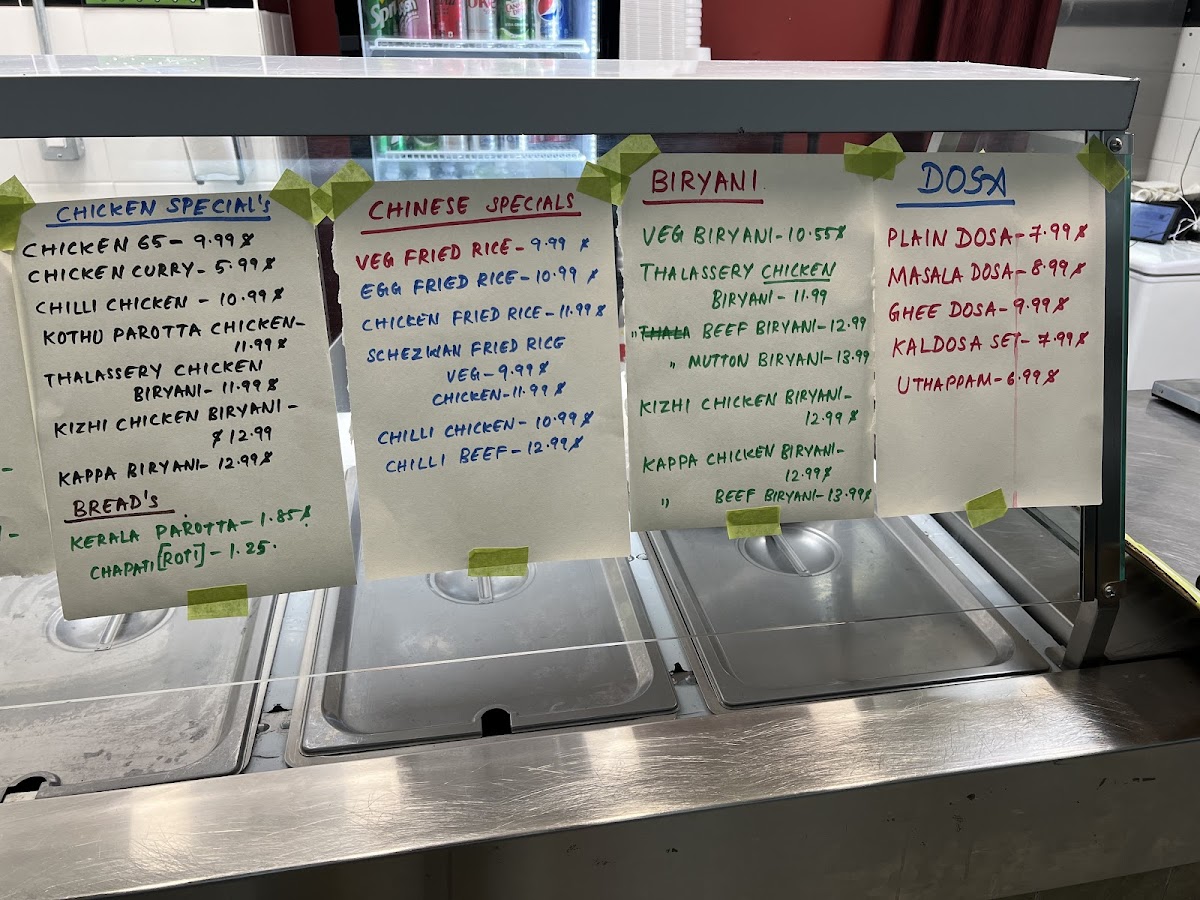 CHICKEN SPECIAL'S
CHICKEN 65 - 9.99 $
CHICKEN CURRY - 5.99 $
CHILLI CHICKEN - 10.99 $
KOTHU PAROTTA CHICKEN -
11.99 $
THALASSERY CHICKEN
BIRYANI - 11.99 $
KIZHI CHICKEN BIRYANI -
$ 12.99
KAPPA BIRYANI - 12.99 $
BREAD'S
KERALA PAROTTA - 1.85 $
CHAPATI [ROTI] - 1.25.
CHINESE SPECIALS
VEG FRIED RICE - 9.99 $
EGG FRIED RICE - 10.99 $
CHICKEN FRIED RICE - 11.99 $
SCHEZWAN FRIED RICE
VEG - 9.99 $
CHICKEN - 11.99 $
CHILLI CHICKEN - 10.99 $
CHILLI BEEF - 12.99 $
BIRYANI
VEG BIRYANI - 10.55 $
THALASSERY CHICKEN
BIRYANI - 11.99
" THALA BEEF BIRYANI - 12.99
" MUTTON BIRYANI - 13.99
KIZHI CHICKEN BIRYANI -
12.99 $
KAPPA CHICKEN BIRYANI -
12.99 $
" BEEF BIRYANI - 13.99 $
DOSA
PLAIN DOSA - 7.99 $
MASALA DOSA - 8.99 $
GHEE DOSA - 9.99 $
KALDOSA SET - 7.99 $
UTHAPPAM - 6.99 $